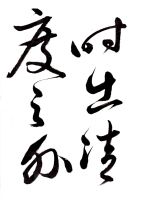 时出法
度之外